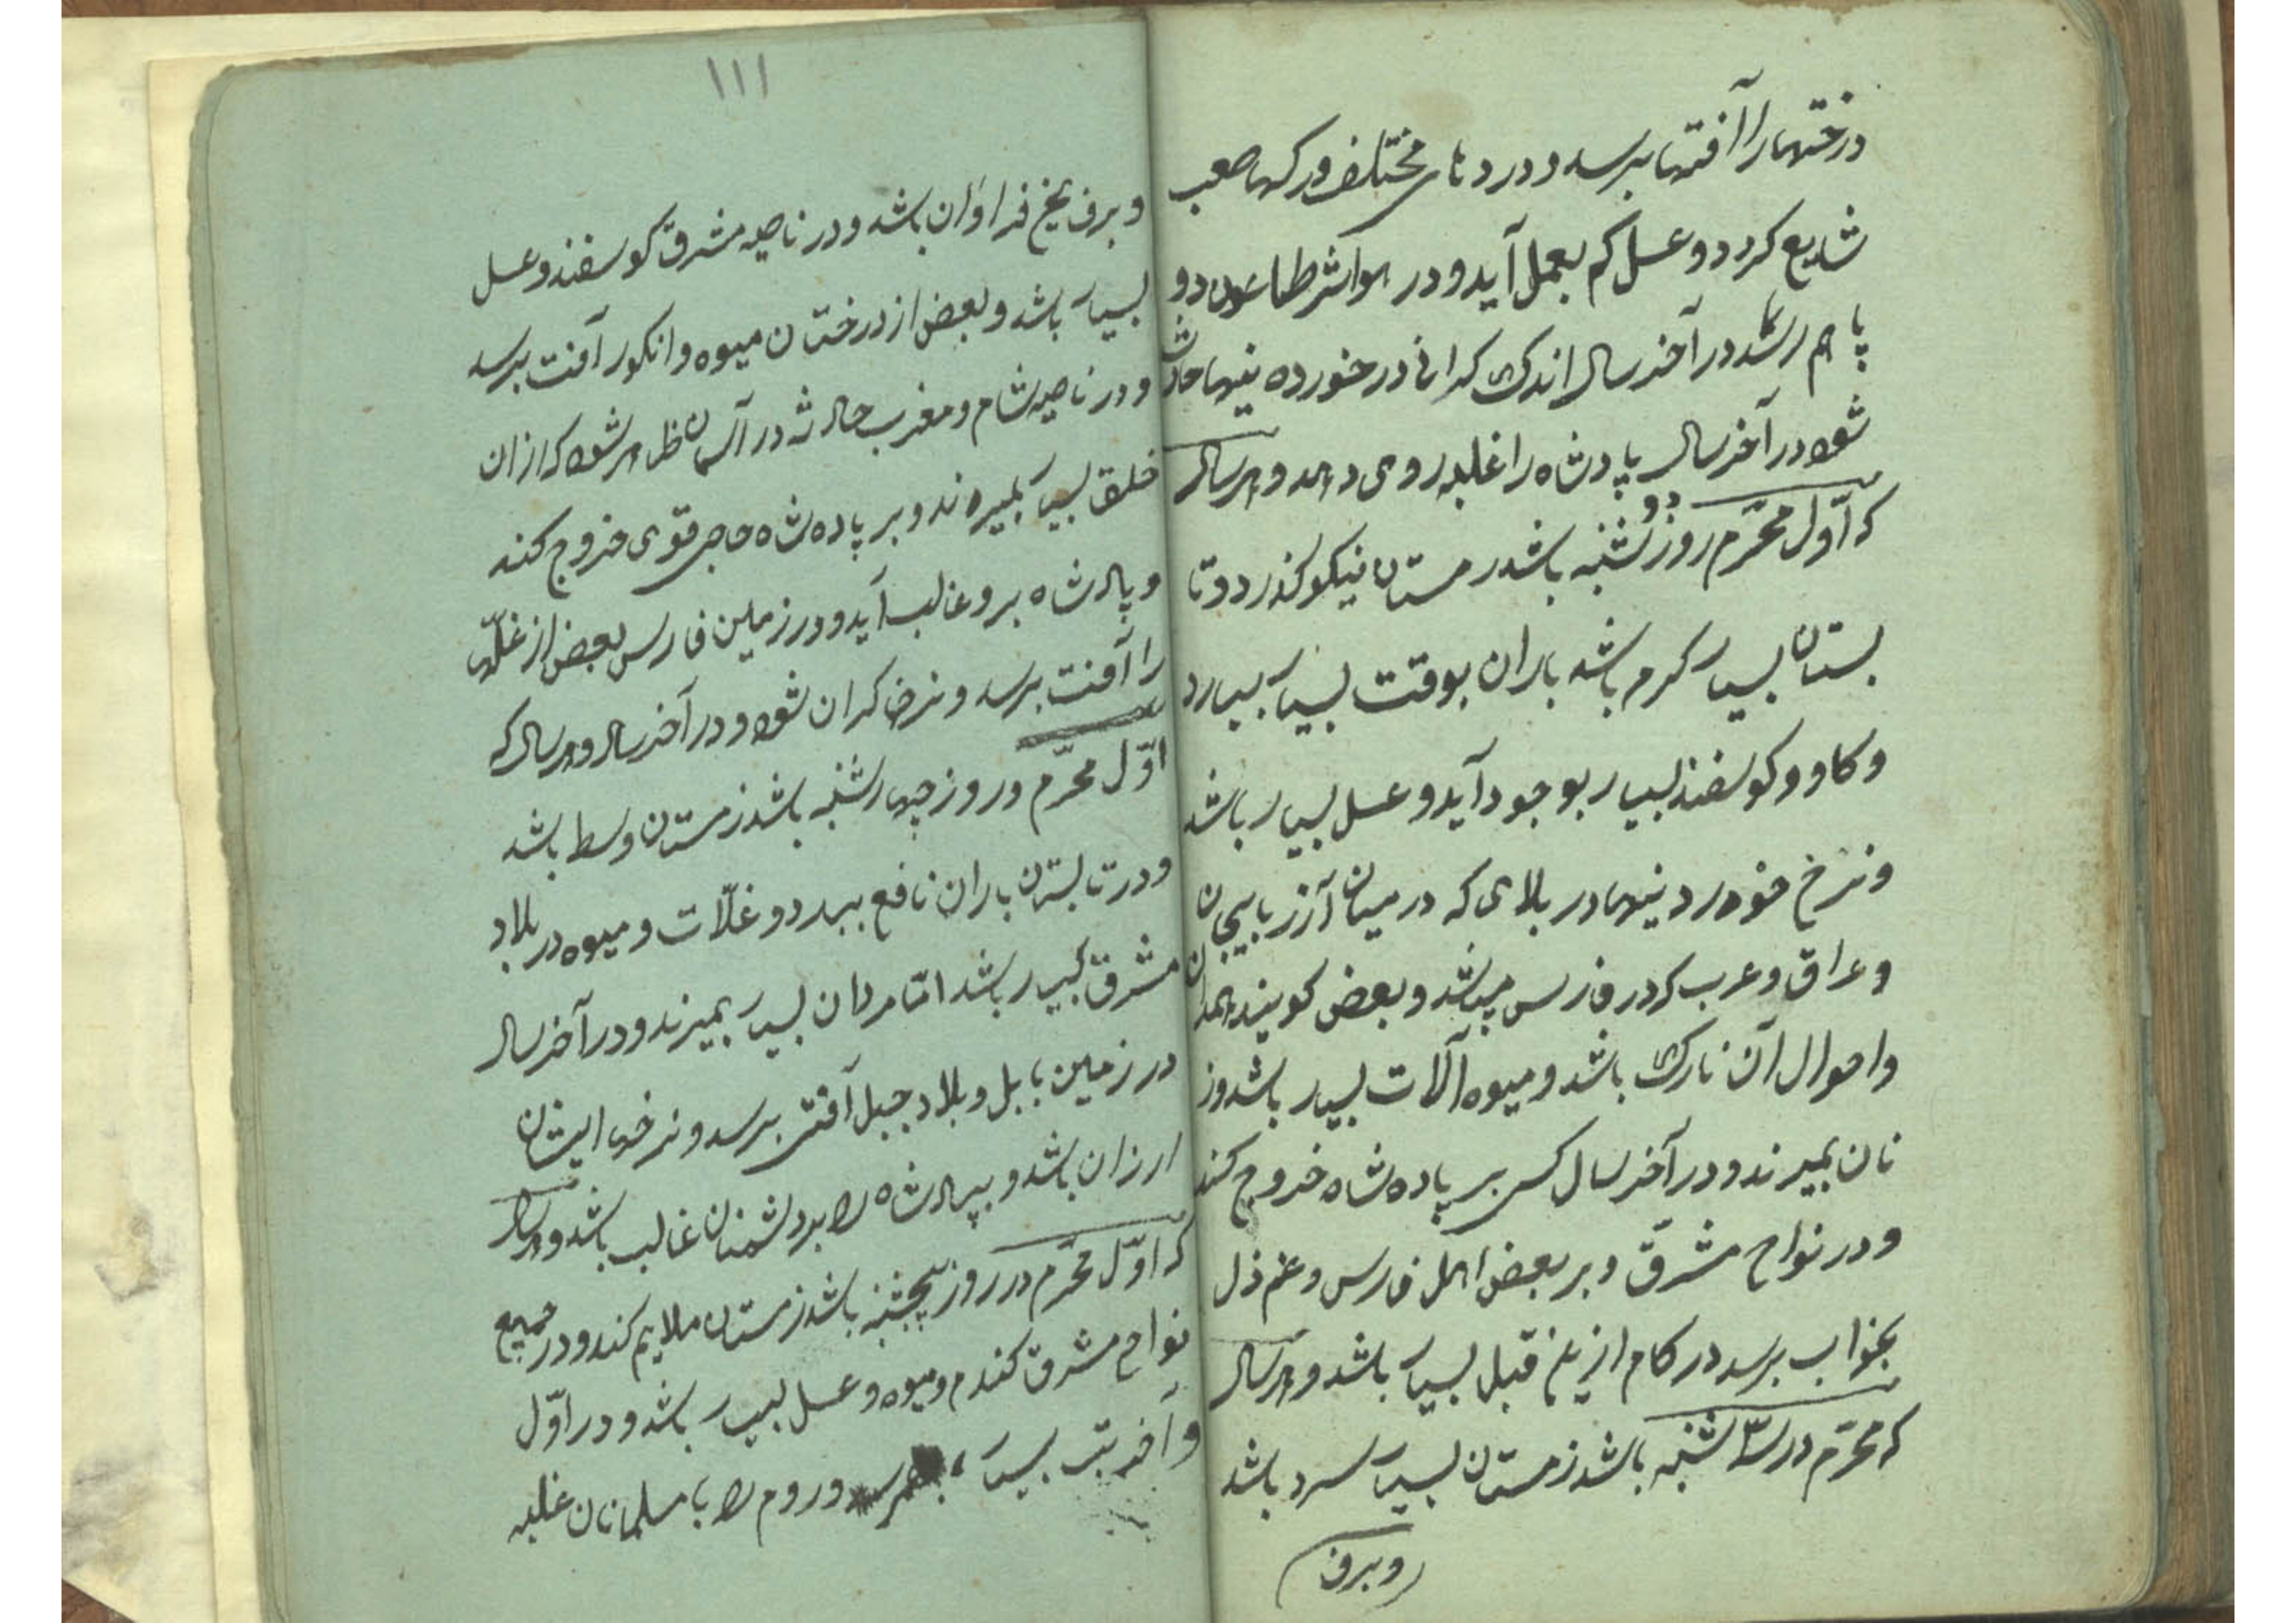 درختها را آفتها برسد و دردهای مختلف و رکهاصعب
شایع کردد و عسل کم بعمل آید و در هوا شرطاعون و و
با هم رسد در آخر سال اندک کرانی در خورده نیها حادث
شود در آخر سال پادشاه را غلبه روی دهد و هر سال
که اول محرّم روز دو شنبه باشد زمستان نیکو کذرد و تا
بستان بسیار کرم باشد باران بوقت بسیار ببارد
و کاو و کوسفند بسیار بوجود آید و عسل بسیار باشد
و نرخ خوردنیها در بلای که در میان آزربایجان
و عراق و عرب که در فارس میباشد و بعض کویند همدان
و احوال آن نارک باشد و میوه آلات بسیار باشد و ز
نان بمیرند و در آخر سال کسی بر پادهشاه خروج کند
و در نواح مشرق و بر بعض اهل فارس و غم ذل
بخواب برسد در کام از یلخ قبل بسیار باشد و هر سال
که محرّم در سه شنبه باشد زمستان بسیار سرد باشد
و برف
۱۱۱
و برف یخ فراوان باشد و در ناحیه مشرق کوسفند و عسل
بسیار باشد و بعض از درختان میوه و انکور آفت برسد
و در ناحیه شام و مغرب حادثه در آسمان ظاهر شود که از ان
خلق بسیار بمیرند و بر پادهشاه حاجی قوی خروج کند
و پادشاه برو غالب آید و در زمین فارس بعض از غلّها
را آفت برسد و نرخ کران شود و در آخر سال و هر سال که
اوّل محرّم در روز چهارشنبه باشد زمستان وسط باشد
و در تابستان باران نافع ببرد و غلّات و میوه در بلاد
مشرق بسیار باشد امّا مردان بسیار بمیرند و در آخر سال
در زمین بابل و بلاد جبل آفتی برسد و نرخها ایشان
ارزان باشد و بپادشاه را بر دشمنان غالب باشد و هر سال
که اوّل محرّم در روز پنجشنبه باشد زمستان ملایم کند و در جمیع
نواح مشرق کندم و میوه و عسل بسیار باشد و در اوّل
و آخر تب بسیار و روم را با مسلمانان غلبه